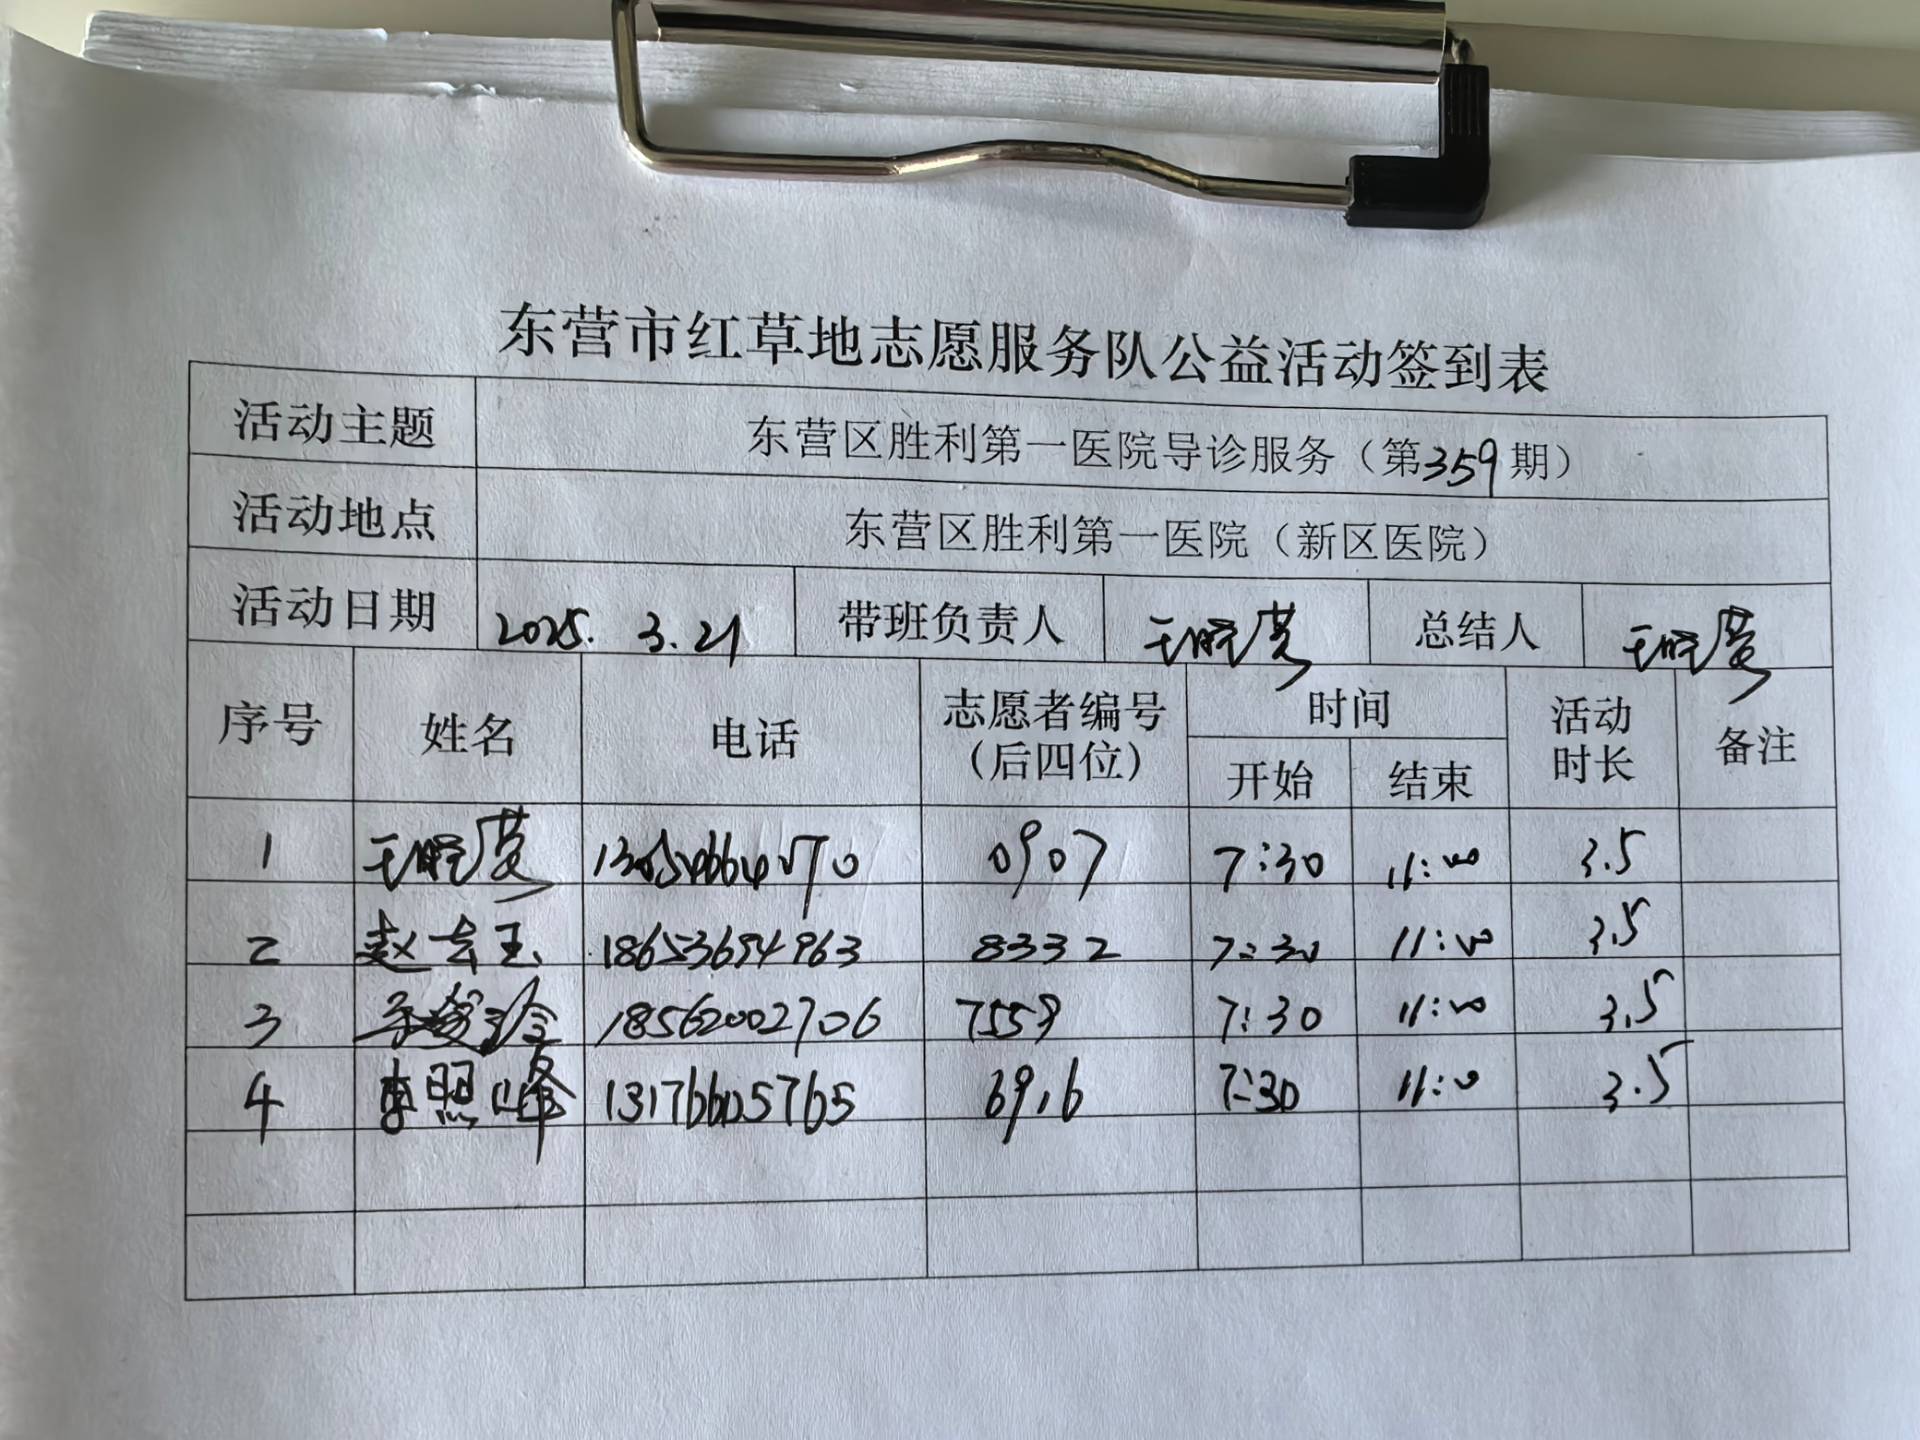 东营市红草地志愿服务队公益活动签到表
活动主题 东营区胜利第一医院导诊服务（第359期）
活动地点 东营区胜利第一医院（新区医院）
活动日期 2025. 3.21 带班负责人 王晓英 总结人 王晓英
序号 姓名 电话 志愿者编号（后四位） 时间 开始 结束 活动时长 备注
1 王晓英 0907 7:30 11:00 3.5
2 赵玉 18653694963 8332 7:30 11:00 3.5
3 18562002706 7559 7:30 11:00 3.5
4 李照峰 13176605765 6916 7:30 11:0 3.5